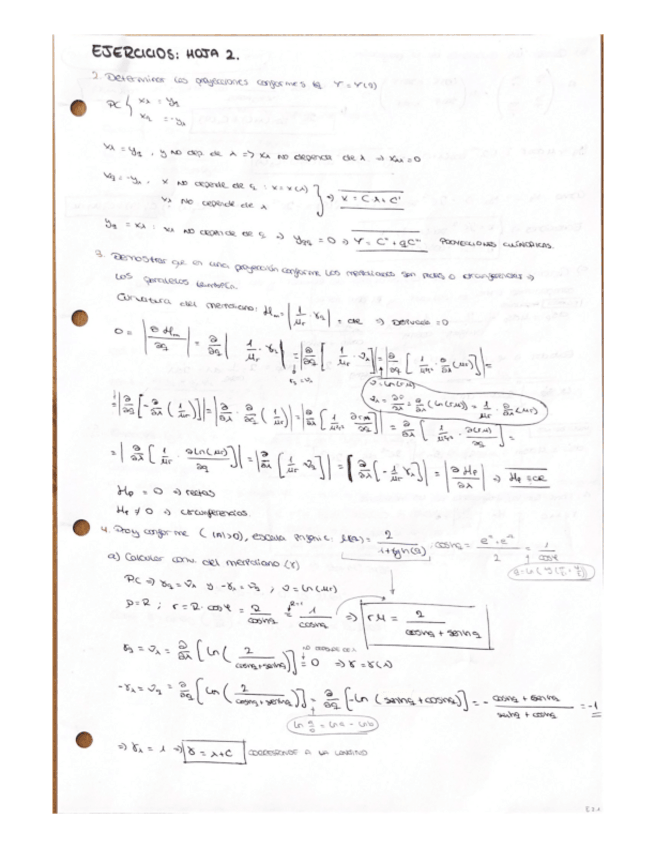 EJERCICIOS: HOJA 2.
2. Determinar las proyecciones conformes tq Y = Y(q)
PC { xλ = yq
xq = -yλ
xλ = yq , y no dep. de λ => xλ no depende de λ => xλλ = 0
xq = -yλ , x no depende de q : x = x(λ)
xλ no depende de λ } => x = Cλ + C'
yq = xλ : xλ no depende de q => yqq = 0 => Y = C'' + qC''' PROYECCIONES CILÍNDRICAS.
3. Demostrar que en una proyección conforme los meridianos son rectas o circunferencias =>
los paralelos también.
Curvatura del meridiano: Hm = | 1/μr · γq | = cte => Derivada = 0
0 = | ∂Hm/∂q | = ∂/∂q | 1/μr · γq | = | ∂/∂q [ 1/μr · νλ ] | = | ∂/∂q [ 1/μ²r² · ∂/∂λ (μr) ] | =
γq = νλ
ν = ln(rμ)
νλ = ∂ν/∂λ = ∂/∂λ (ln(rμ)) = 1/μr · ∂/∂λ (μr)
= | ∂/∂q [ -∂/∂λ ( 1/μr ) ] | = | ∂/∂λ · ∂/∂q ( 1/μr ) | = | ∂/∂λ [ 1/μ²r² · ∂rμ/∂q ] | = ∂/∂λ [ 1/μr · ∂(rμ)/∂q ] =
= | ∂/∂λ [ 1/μr · ∂ln(rμ)/∂q ] | = | ∂/∂λ [ 1/μr νq ] | = | ∂/∂λ [ -1/μr γλ ] | = | ∂Hp/∂λ | => Hp = cte
Hp = 0 => rectas
Hp ≠ 0 => circunferencias.
4. Proy conforme ( |m| > 0), escala μ(q) = 2/(1+tgh(q)) ; coshq = (e^q + e^-q)/2 = 1/cosφ
a) Calcular conv. del meridiano (γ)
PC => γq = νλ y -γλ = νq ; ν = ln(μr)
r = R · cosφ = R/coshq = 1/coshq => rμ = 2/(coshq + senhq)
R=1
γq = νλ = ∂/∂λ [ ln ( 2/(coshq + senhq) ) ] = 0 => γ = γ(λ)
NO DEPENDE DE λ
-γλ = νq = ∂/∂q [ ln ( 2/(coshq + senhq) ) ] = ∂/∂q [ -ln ( senhq + coshq ) ] = - (coshq + senhq)/(senhq + coshq) = -1
ln a/b = ln a - ln b
=> γλ = 1 => γ = λ + C CORRESPONDE A LA LONGITUD